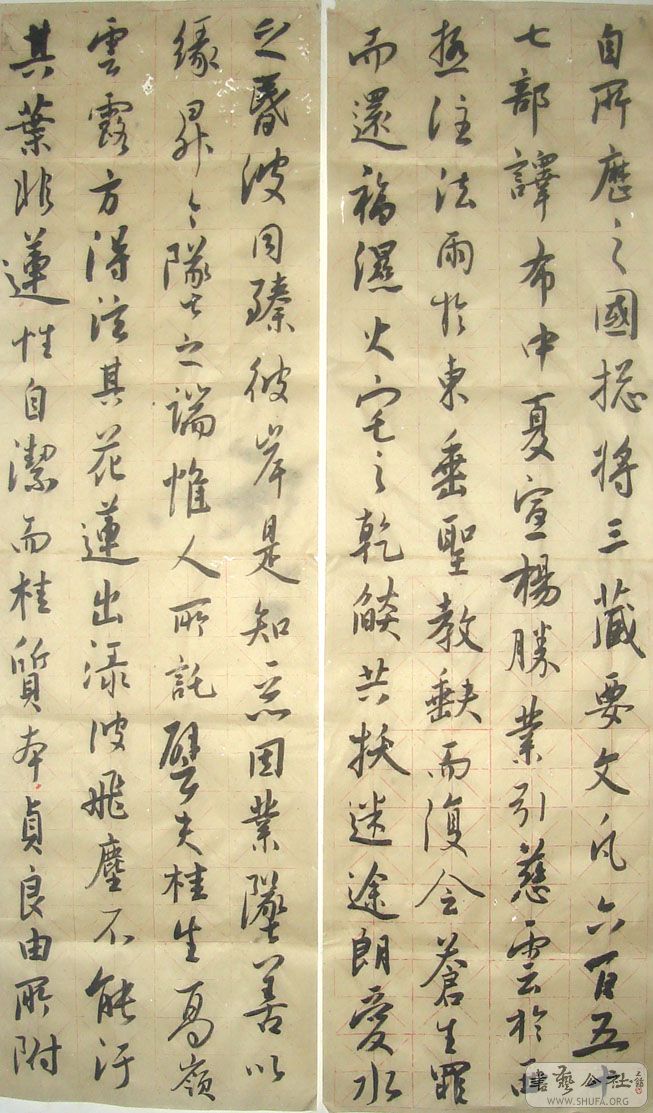 自所歷之國摠將三藏要文凡六百五十
七部譯布中夏宣楊勝業引慈雲於西
極注法雨於東垂聖教缺而復全蒼生罪
而還福濕火宅之乾燄共拔迷途朗愛水
之昏波同臻彼岸是知惡因業墜善以
緣昇々墜之端惟人所託譬夫桂生高嶺
雲露方得泫其花蓮出淥波飛塵不能汙
其葉非蓮性自潔而桂質本貞良由所附
書藝公社
WWW.SHUFA.ORG